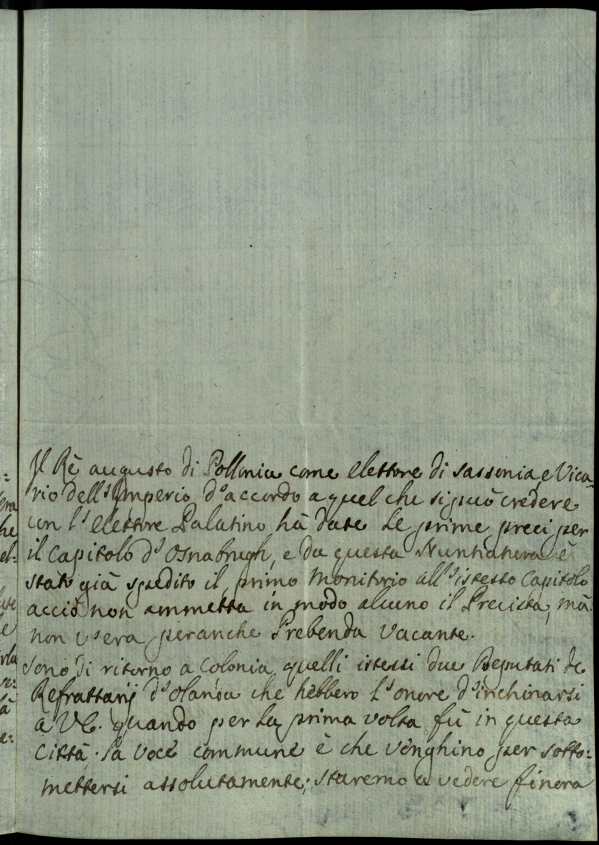 Il Rè augusto di Pollonia come elettore di sassonia e Vica„
rio dell'Imperio d'accordo a quel che si può credere
con l'elettore Palatino hà date le prime preci per
il Capitolo d'Osnabrugh, e da questa Nuntiatura è
stato già spedito il primo monitorio all'istesso Capitolo
acciò non ammetta in modo alcuno il Precista, mà
non v'era peranche Prebenda vacante.
Sono di ritorno a Colonia quelli istessi due Deputati de
Refrattarij d'Olanda che hebbero l'onore d'inchinarsi
à VE. quando per la prima volta fù in questa
Città. la voce commune è che venghino per sotto„
mettersi assolutamente; staremo a vedere finora